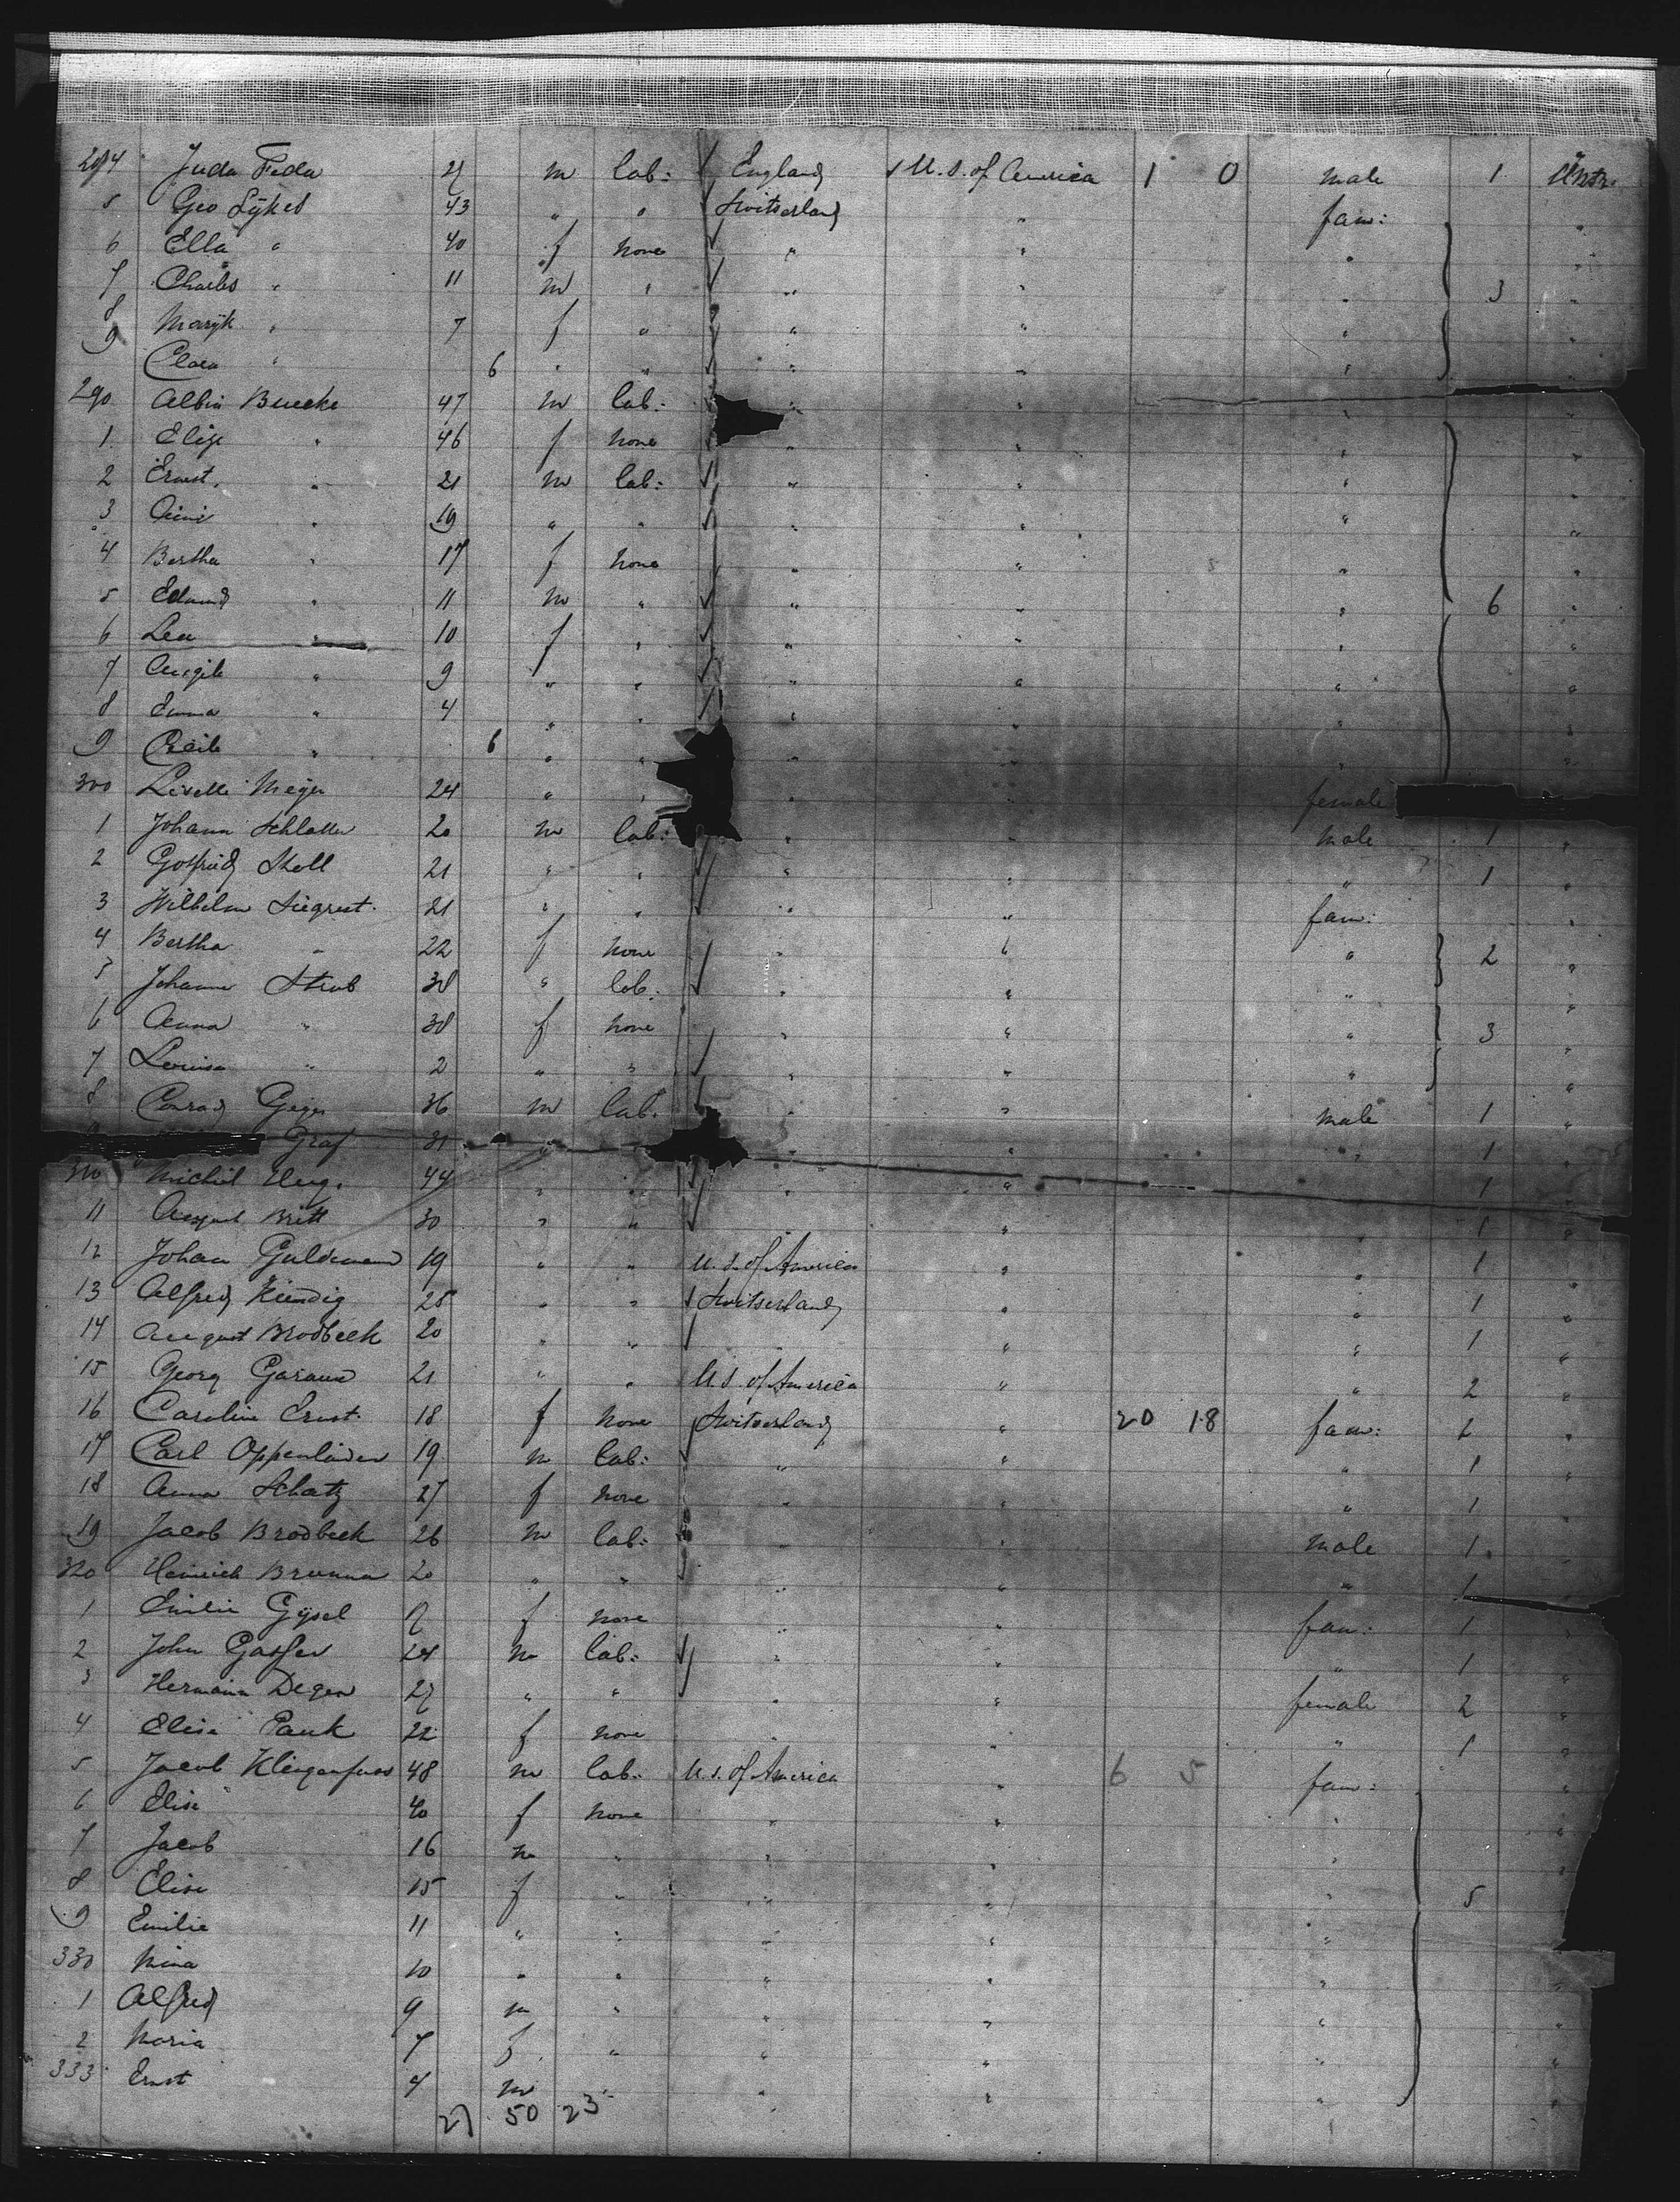 294 Juda Feda m lab: England U.S. of America 1 0 male 1 Untr.
5 Geo Sykes 43 " " Switserland " fam: "
6 Ella " 40 f none " " " "
7 Charles " 11 m " " " " 3 "
8 " 7 f " " " " "
9 Clara " 6 " " " " " "
290 Albin Buecke 47 m lab: " " " "
1 Elise " 46 f none " " "
2 Ernest " 21 m lab: " " " "
3 " 19 " " " " " "
4 Bertha " 17 f none " " " "
5 Edmund " 11 m " " " " 6 "
6 Lea " 10 f " " " " "
7 " 9 " " " " " "
8 Emma " 4 " " " " " "
9 " 6 " " " "
300 Lisette Meyer 24 " " " female
1 Johann Schlatter 20 m lab: " " male 1 "
2 Gotfried Stoll 21 " " " " " 1 "
3 Wilhelm Siegrist 21 " " " " fam: "
4 Bertha " 22 f none " " " 2 "
5 Johann Strub 38 " lab: " " " "
6 Anna " 38 f none " " " 3 "
7 Louisa " 2 " " " " " "
8 Conrad Geiger 36 m lab. " " male 1 "
9 Graf 31 " " " " 1 "
310 Michel 44 " " " " 1
11 August Britt 30 " " " " 1 "
12 Johan Guldimann 19 " " U.S. of America " " 1 "
13 Alfred Kündig 28 " " Switserland " " 1 "
14 August Brodbeck 20 " " " " 1 "
15 Georg 21 " " U.S. of America " " 2 "
16 Caroline Ernst 18 f none Switserland " 20 18 fam: 2 "
17 Carl Oppenländer 19 m lab: " " " 1 "
18 Anna Schatz 27 f none " " " 1 "
19 Jacob Brodbeck 26 m lab: " " male 1 "
320 Heinrich Brunner 20 " " " " " 1
1 Emilie Gysel f none " " fam: 1
2 John Gasser 24 m lab: " " " 1 "
3 Hermann Degen 27 " " " " female 2 "
4 Elise 22 f none " " " 1 "
5 Jacob Klingenfuss 48 m lab: U.S. of America " 6 5 fam: "
6 Elise 40 f none " " " "
7 Jacob 16 m " " " "
8 Elise 15 f " " " " 5
9 Emilie 11 " " " " "
330 Nina 10 " " " " " "
1 Alfred 9 m " " " " "
2 Maria 7 f " " " " "
333 Ernst 4 m " " " " "
27 50 23